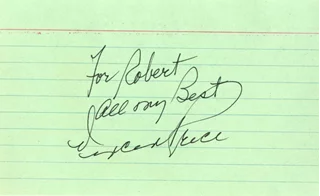 For Robert
All my Best
Vincent Price